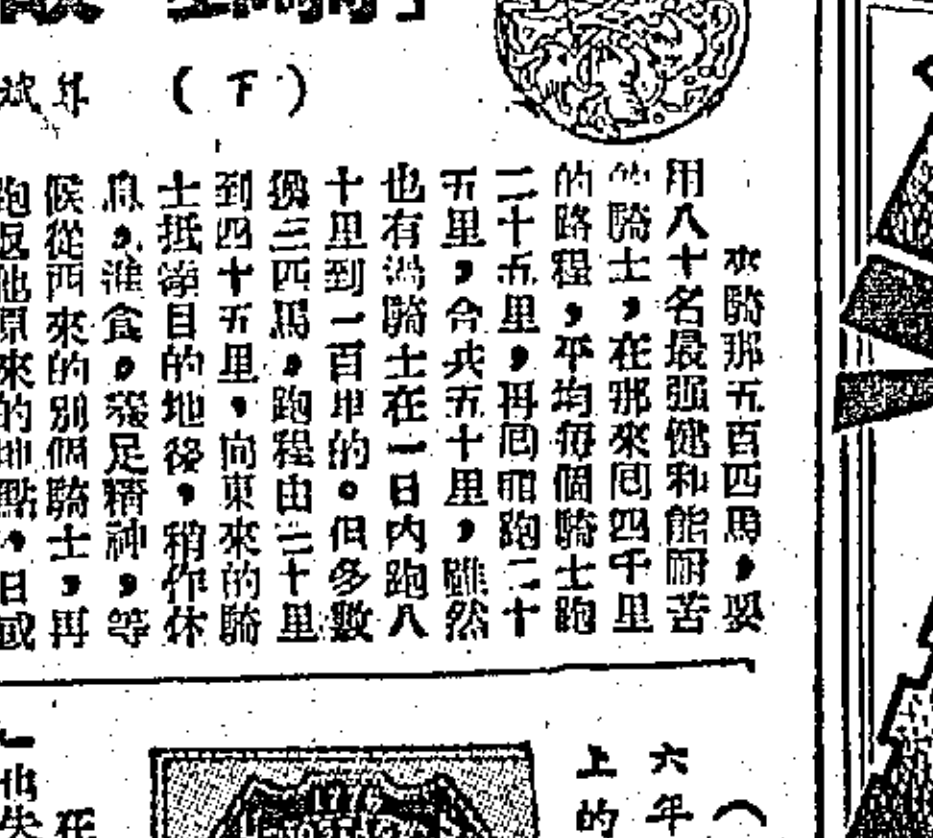 (下)
來騎那五百匹馬,要
用八十名最强健和能耐苦
的騎士,在那來囘四千里
的路程,平均每個騎士跑
二十五里,再囘頭跑二十
五里,合共五十里,雖然
也有些騎士在一日内跑八
十里到一百里的。但多數
換三匹馬,跑程由三十里
到四十五里,向東來的騎
士抵達目的地後,稍作休
息,進食,養足精神,等
候從西來的別個騎士,再
跑返他原來的地點,日或
六年
上的